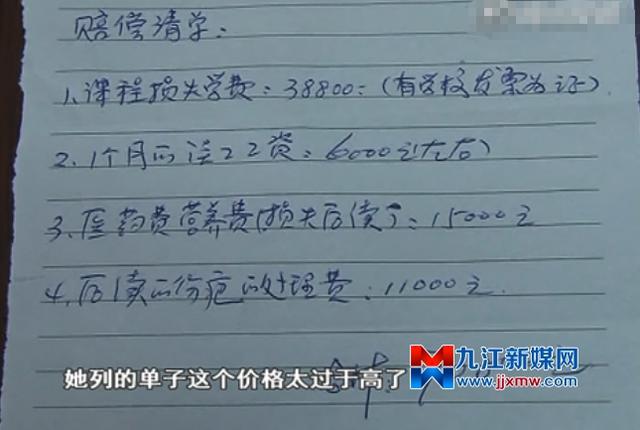 赔偿清单:
1、课程损失学费:38800:(有学校发票为证)
2、1个月的误工工资:6000元(左右)
3、医药费营养费(损失后续):15000元
4、后续的伤疤的处理费:11000元.
她列的单子这个价格太过于高了
九江新媒网
www.jjxmw.com